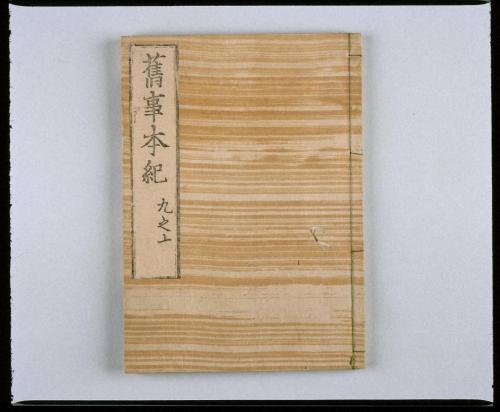 舊事本紀
九之上